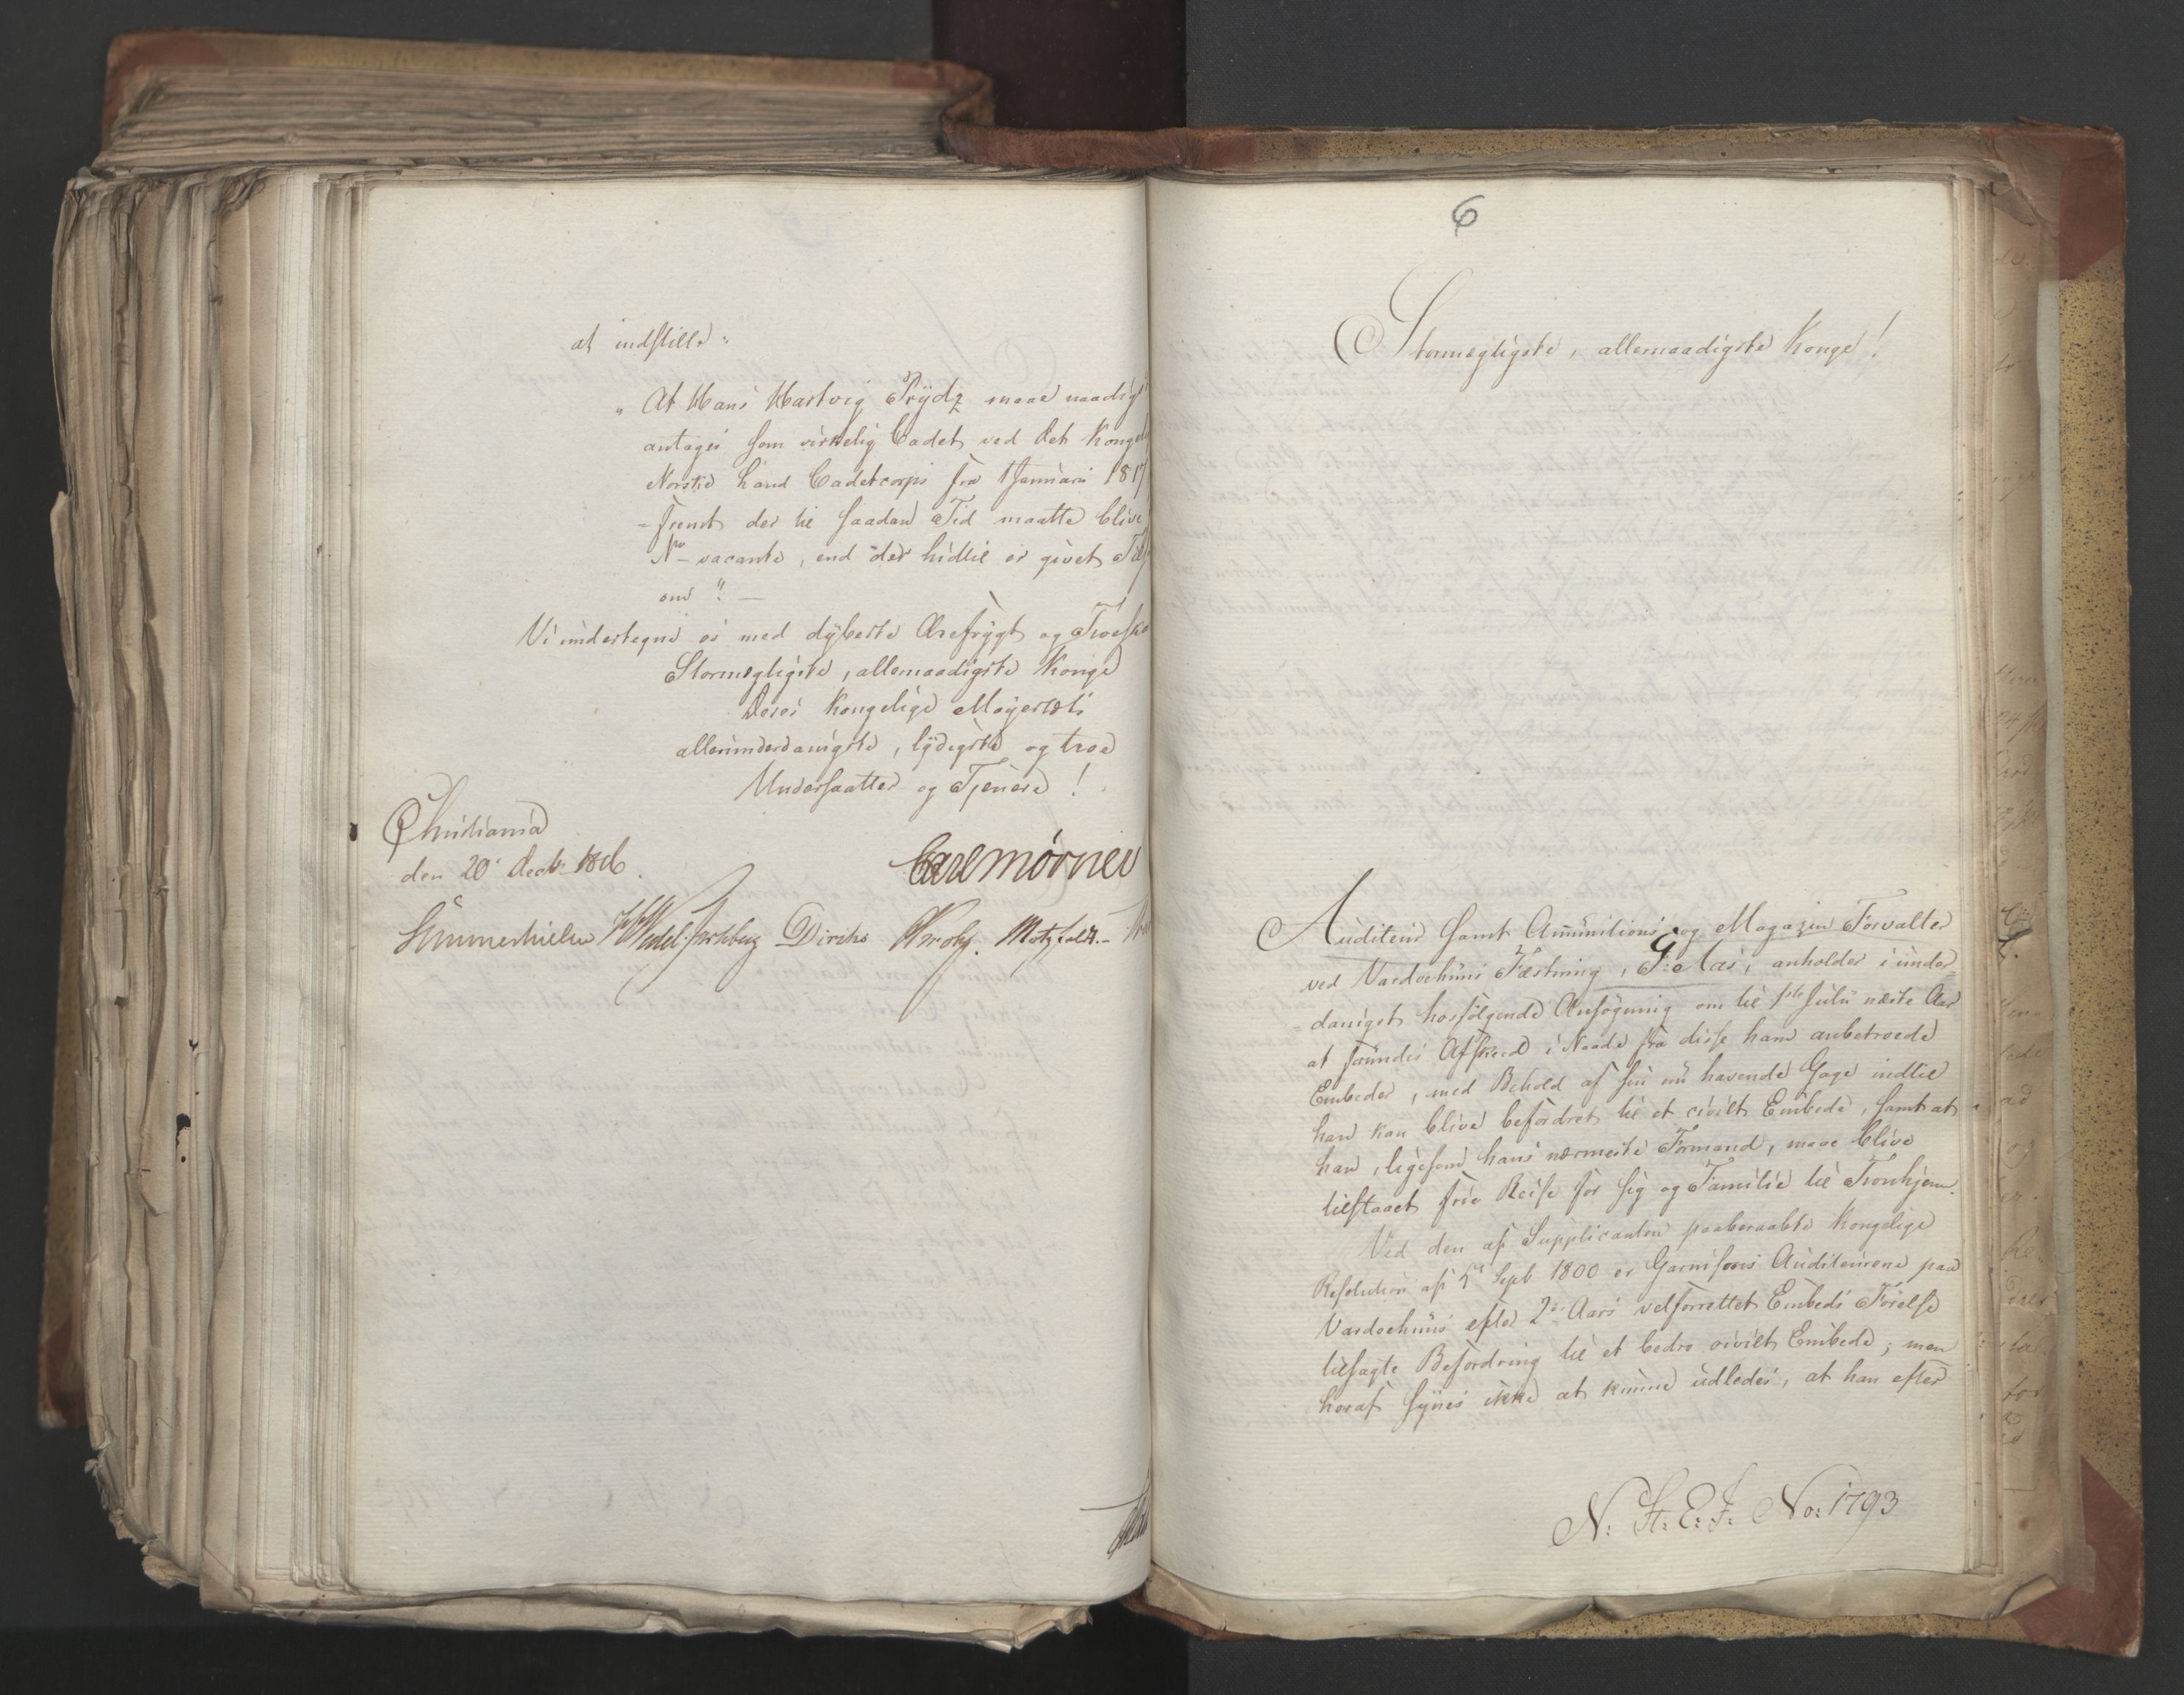 at indstille:
"At Hans Hartvig Prydz maae naadigst
antages som virkelig Cadet ved det Kongel
Norske Land Cadetcorps fra 1 Januari 1817
-fremt der til saadan Tid maatte blive
No vacante, end der hidtil er givet
om".
Vi undertegne os med dybeste Ærefrygt og Troeska
Stormægtigste, allernaadigste Konge
Deres Kongelige Mayestæts
allerunderdanigste, lydigste og troe
Undersaatter og Tjenere!
Christiania
den 20de Decbr 1816.
Carl Mörner
Sommerhielm HWedel Jarlsberg Diriks Krohg. Motzfeldt.-
6
Stormægtigste, allernaadigste Konge!
Auditeur samt Amunitions og Magazin Forvalter
ved Vardoehuus Fæstning, anholder i under=
=danigst hosfølgende Ansøgning om til 1ste Julii næste Aar
at forundes Afskeed i Naade fra disse ham anbetroede
Embeder, med Behold af sin nu havende Gage indtil
han kan blive befordret til et civilt Embede, samt at
han, ligesom hans nærmeste Formand, maae blive
tilstaaet frie Reise for sig og Familie til Tronhjem.
Ved den af Supplicanten paaberaabte Kongelige
Resolution af 5te Septb 1800 er Garnisons Auditeurene paa
Vardoehuus efter 2de Aars velforrettet Embeds Førelse
tilsagte Befordring til et bedre civilt Embede; men
heraf synes ikke at kunne udledes, at han efter
N: St: E: J: No: 1793